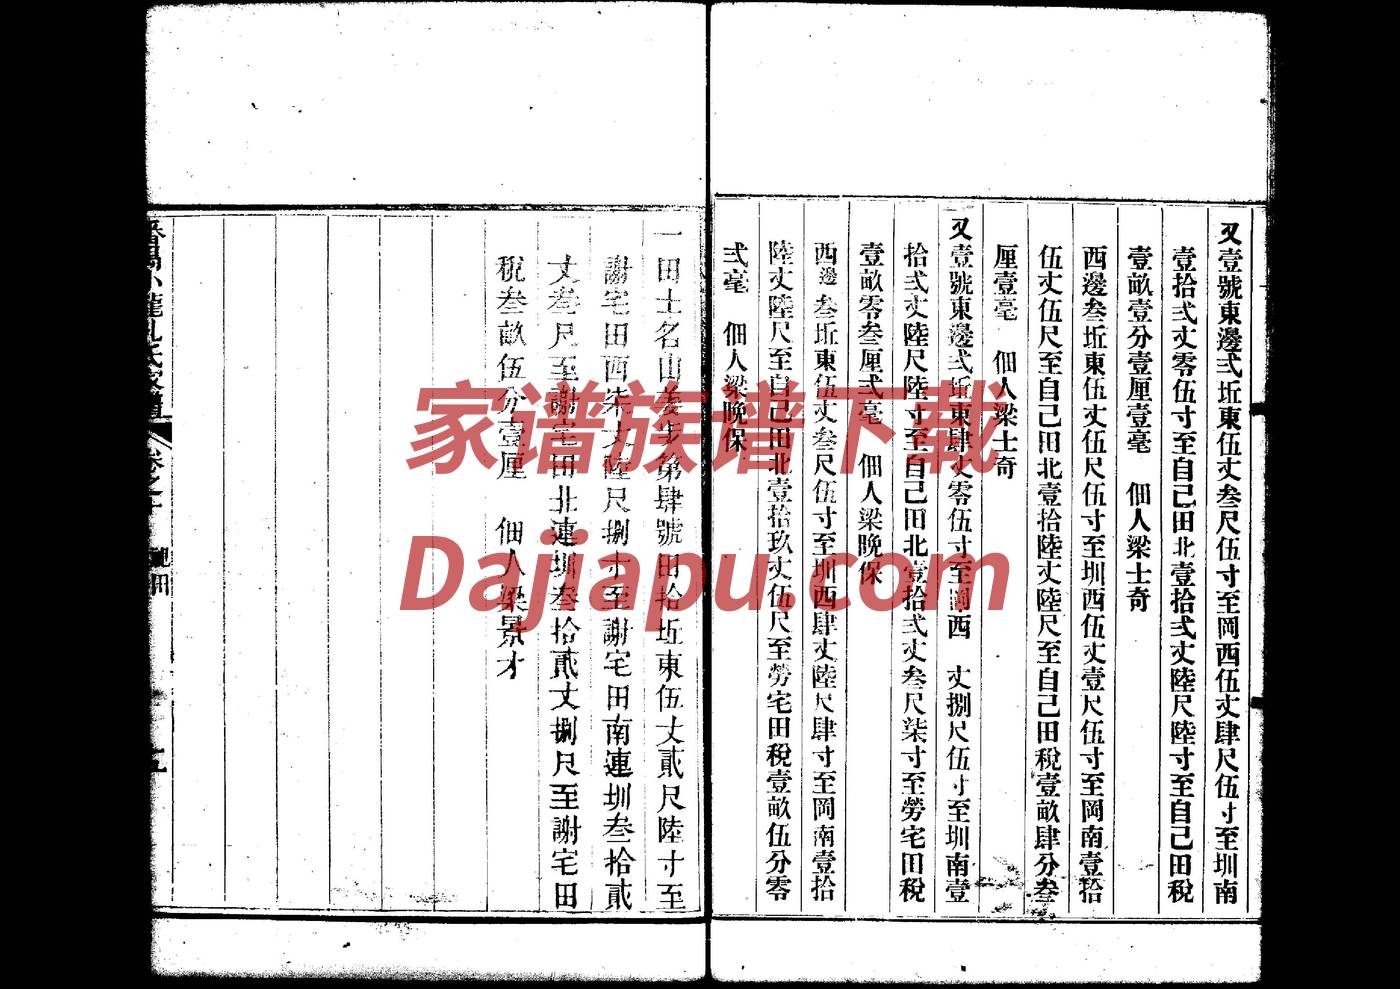 又壹號東邊弍坵東伍丈叁尺伍寸至岡西伍丈肆尺伍寸至圳南
壹拾弍丈零伍寸至自己田北壹拾弍丈陸尺陸寸至自己田税
壹畝壹分壹厘壹毫 佃人梁士奇
西邊叁坵東伍丈伍尺伍寸至圳西伍丈壹尺伍寸至岡南壹拾
伍丈伍尺至自己田北壹拾陸丈陸尺至自己田税壹畝肆分叁
厘壹毫 佃人梁士奇
又壹號東邊弍坵東肆丈零伍寸至 西 丈捌尺伍寸至圳南壹
拾弍丈陸尺陸寸至自己田北壹拾弍丈叁尺柒寸至勞宅田税
壹畝零叁厘弍毫 佃人梁晚保
西邊叁坵東伍丈叁尺伍寸至圳西肆丈陸尺肆寸至岡南壹拾
陸丈陸尺至自己田北壹拾玖丈伍尺至勞宅田税壹畝伍分零
弍毫 佃人梁晚保
一田土名山 第肆號田拾坵東伍丈貳尺陸寸至
謝宅田西柒丈陸尺捌寸至謝宅田南連圳叁拾貳
丈叁尺至謝宅田北連圳叁拾貳丈捌尺至謝宅田
税叁畝伍分壹厘 佃人梁景才
家谱族谱下载
Dajiapu.com